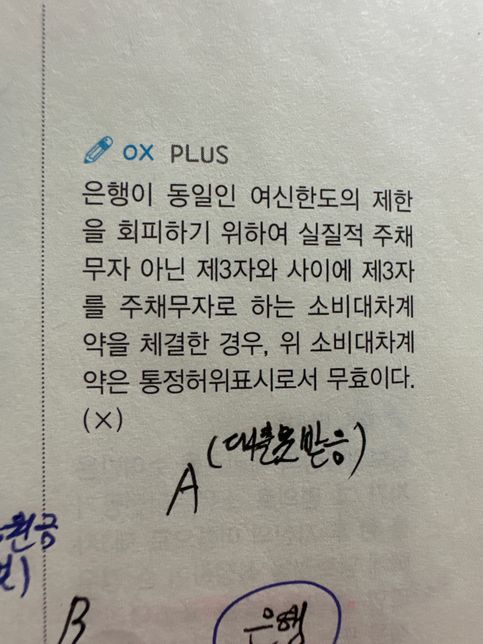 OX PLUS
은행이 동일인 여신한도의 제한
을 회피하기 위하여 실질적 주채
무자 아닌 제3자와 사이에 제3자
를 주채무자로 하는 소비대차계
약을 체결한 경우, 위 소비대차계
약은 통정허위표시로서 무효이다.
(×)
(대출못받음)
A
B
은행